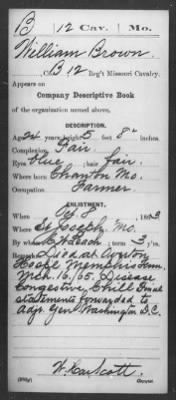 B 12 Cav. Mo.
William Brown.
, Co B 12 Reg't Missouri Cavalry.
Appears on
Company Descriptive Book
of the organization named above.
DESCRIPTION.
Age 24 years; height 5 feet 8 inches.
Complexion Fair.
Eyes blue ; hair fair.
Where born Mo.
Occupation Farmer.
ENLISTMENT.
When Oct 8 , 1863
Where St Joseph Mo.
By whom ; term 3 y'rs.
Remarks: Died at
Hospl. Memphis Tenn.
Mch. 16/65. Disease
Congestive Chill
statements forwarded to
Adjt. Genl. Washington D.C.
Scott.
Copyist.